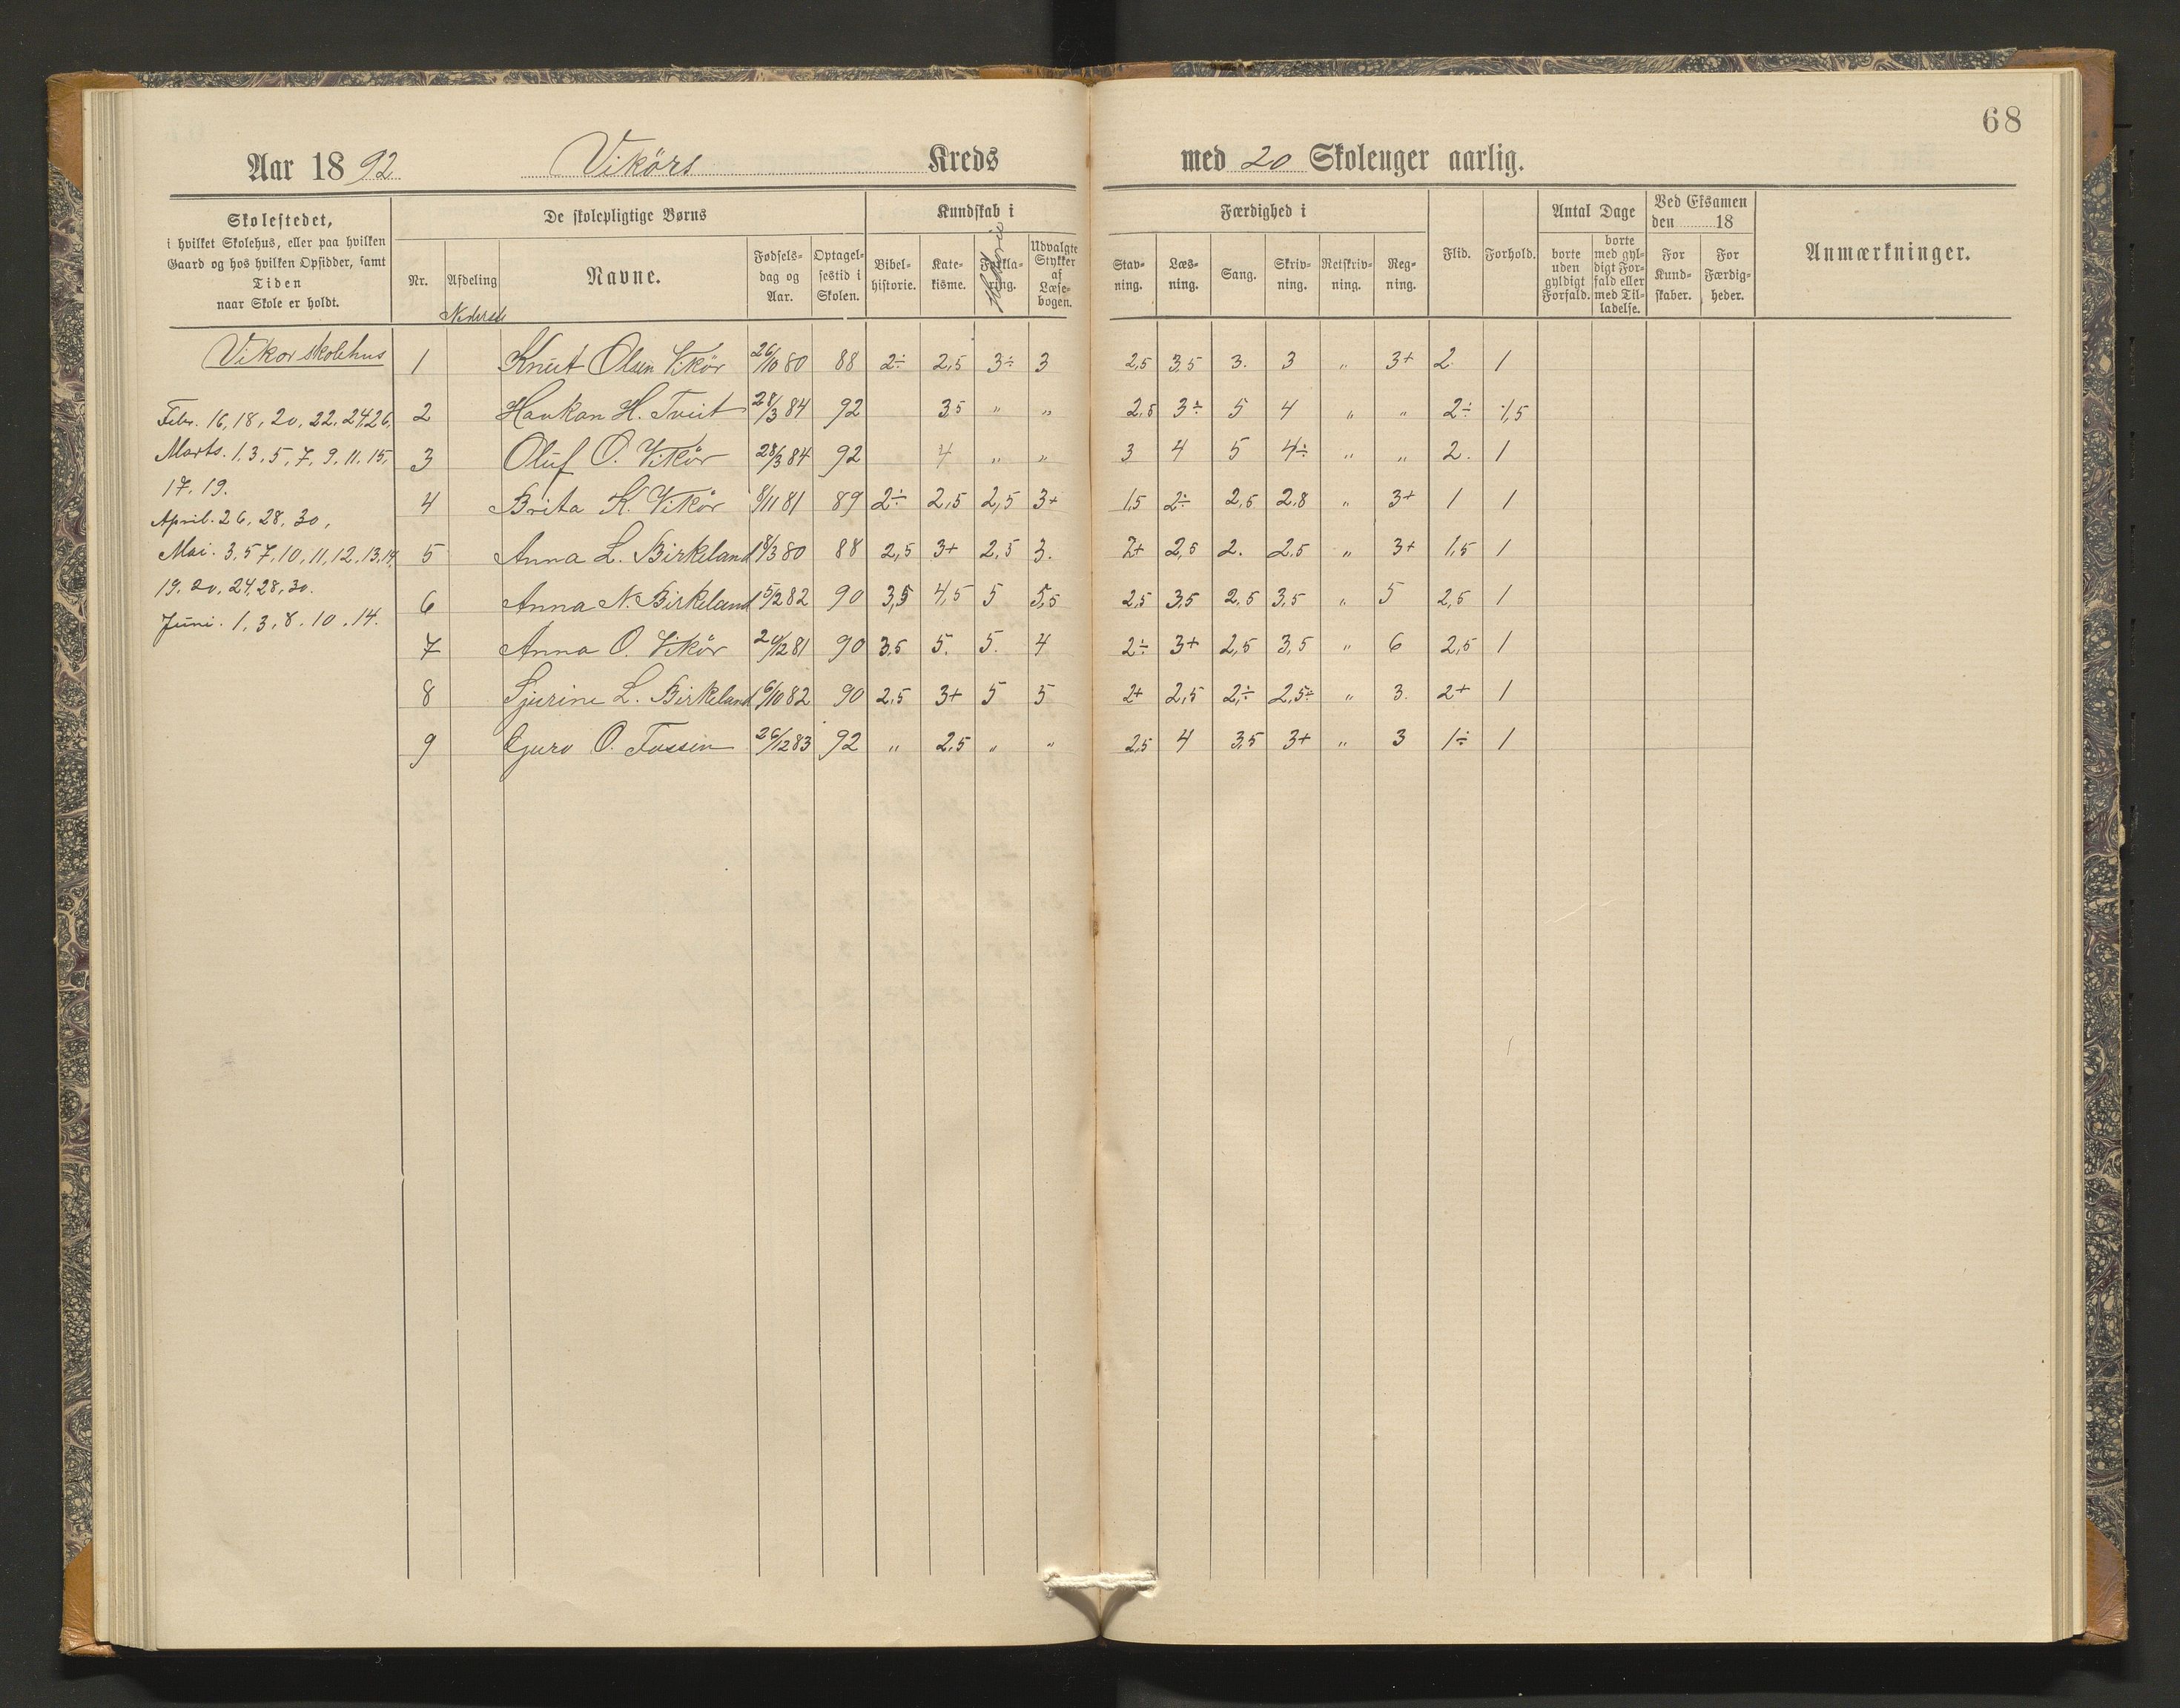 68
Aar 1892 Vikörs Kreds med 20 Skoleuger aarlig.
Skolestedet,
i hvilket Skolehus, eller paa hvilken
Gaard og hos hvilken Opsidder, samt
Tiden
naar Skole er holdt.
De skolepligtige Børns
Nr.
Afdeling
Nederste
Navne.
Fødsels-
dag og
Aar.
Optagel-
sestid i
Skolen.
Kundskab i
Bibel-
historie.
Kate-
kisme.
Forkla-
ring.
Historie
Udvalgte
Stykker
af
Læse-
bogen.
Færdighed i
Stav-
ning.
Læs-
ning.
Sang.
Skriv-
ning.
Retskriv-
ning.
Reg-
ning.
Flid.
Forhold.
Antal Dage
borte
uden
gyldigt
Forfald.
borte
med gyl-
digt For-
fald eller
med Til-
ladelse.
Ved Eksamen
den 18
For
Kund-
skaber.
For
Færdig-
heder.
Anmærkninger.
Vikor skolehus
Febr. 16, 18, 20, 22, 24, 26,
Marts. 1, 3, 5, 7, 9, 11, 15,
17, 19.
April. 26, 28, 30,
Mai. 3, 5, 7, 10, 11, 12, 13, 14,
19, 20, 24, 28, 30.
Juni. 1, 3, 8, 10, 14.
1 Knut Olsen Vikör 26/10 80 88 2÷ 2,5 3÷ 3 2,5 3,5 3. 3 " 3+ 2. 1
2 Haukan H. Tveit 28/3 84 92 35 " " 2,5 3÷ 5 4 " " 2÷ 1,5
3 Oluf O. Vikör 28/3 84 92 4 " " 3 4 5 4÷ " " 2. 1
4 Brita K. Vikör 8/11 81 89 2÷ 2,5 2,5 3+ 1,5 2÷ 2,5 2,8 " 3+ 1 1
5 Anna L. Birkeland 18/3 80 88 2,5 3+ 2,5 3. 2+ 2,5 2. 2,5 " 3+ 1,5 1
6 Anna N. Birkeland 5/2 82 90 3,5 4,5 5 5,5 2,5 3,5 2,5 3,5 " 5 2,5 1
7 Anna O. Vikör 24/12 81 90 3,5 5. 5. 4 2÷ 3+ 2,5 3,5 " 6 2,5 1
8 Sjurine L. Birkeland 6/10 82 90 2,5 3+ 5 5 2+ 2,5 2÷ 2,5÷ " 3. 2+ 1
9 Guro O. Fossen 26/12 83 92 " 2,5 " " 2,5 4 3,5 3+ " 3 1÷ 1